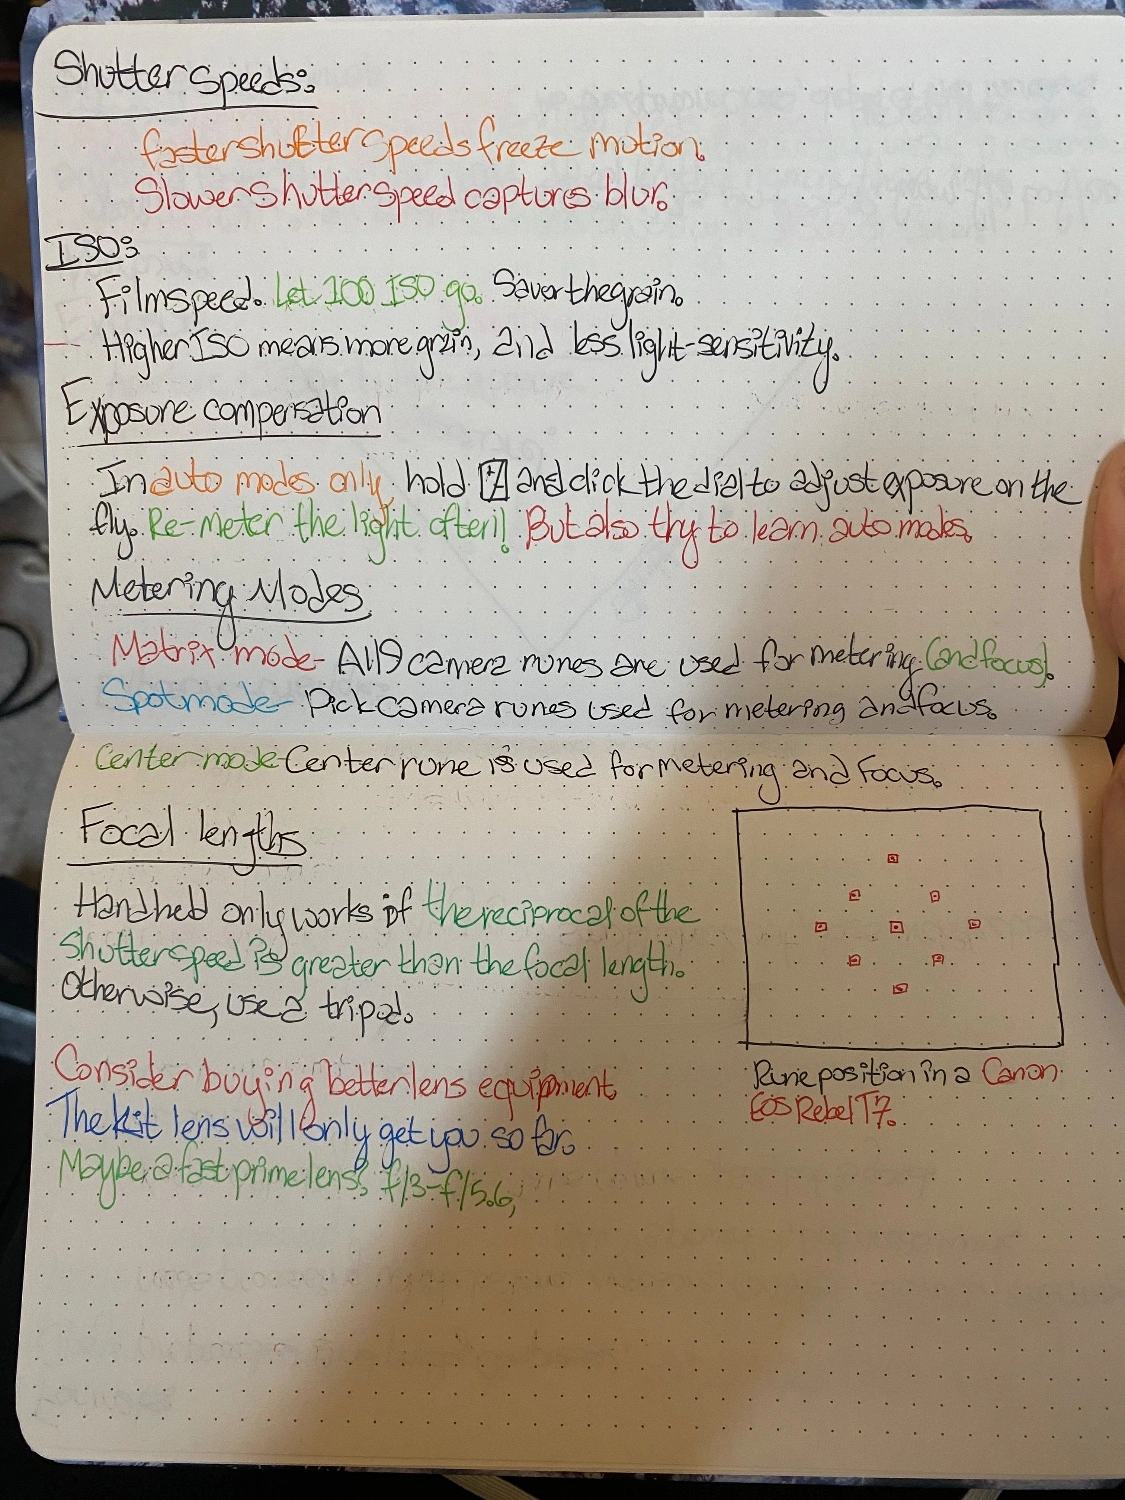 Shutter speeds:
faster shutter speeds freeze motion.
Slower shutter speed captures blur.
ISO:
Film speed. Let 100 ISO go. Savor the grain.
Higher ISO means more grain, and less light-sensitivity.
Exposure compensation
In auto modes only, hold +/- and click the dial to adjust exposure on the
fly. Re-meter the light after!! But also try to learn auto modes.
Metering Modes
Matrix mode- All 9 camera runes are used for metering (and focus).
Spot mode- Pick camera runes used for metering and focus.
Center mode- Center rune is used for metering and focus.
Focal lengths
Handheld only works if the reciprocal of the
shutterspeed is greater than the focal length.
Otherwise, use a tripod.
Consider buying better lens equipment
The kit lens will only get you so far.
Maybe a fast prime lens? f/3-f/5.6,
Rune position in a Canon
EOS Rebel T7.